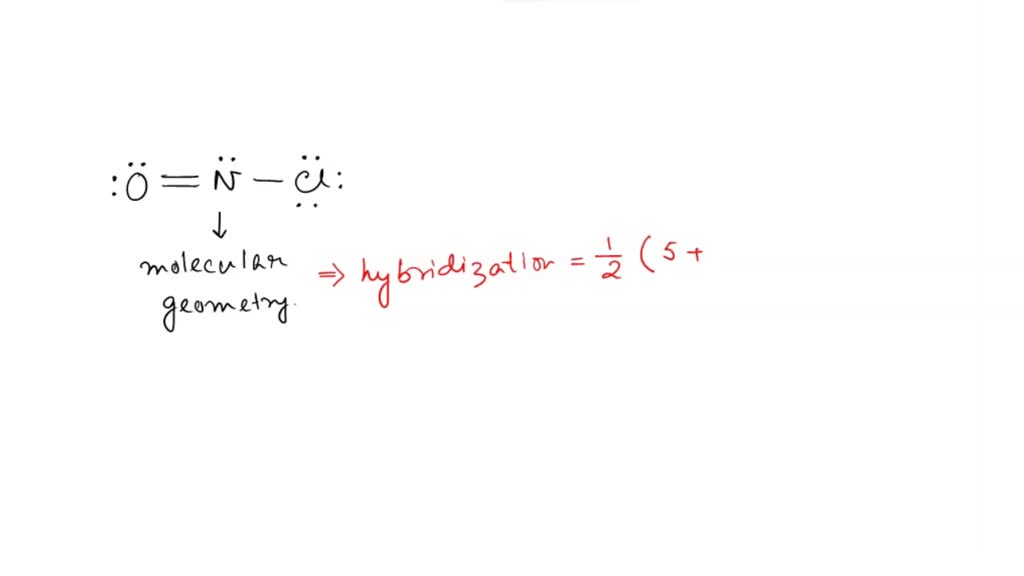 :Ö = N̈ – C̈l:
↓
molecular
geometry.
⇒ hybridization = 1/2 ( 5 +